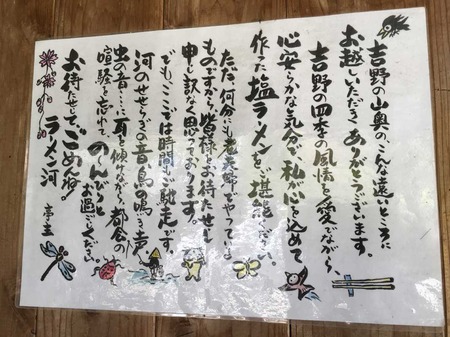 吉野の山奥のこんな遠いところに
お越しいただきありがとうございます。
吉野の四季の風情を愛でながら、
心安らかな気分で、私が心を込めて
作った塩ラーメンをご堪能ください。
ただ、何分にも老夫婦でやっている
ものですから、皆様をお待たせし
申し訳なく思っております。
でも、ここでは時間もご馳走です。
河のせせらぎの音、鳥の鳴き声、
虫の音…に耳を傾けながら、都会の
喧騒を忘れて、のーんびりと
お過ごしください。
お待たせして、ごめんね!
ラーメン河 亭主